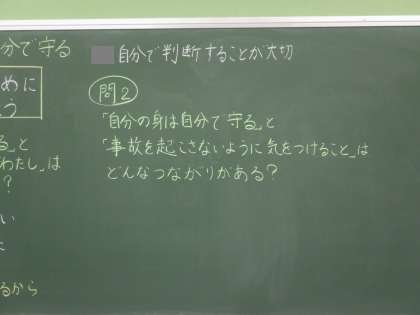 分で守る
めに
う
る」と
わたし」は
?
い
るから
自分で判断することが大切
問2
「自分の身は自分で守る」と
「事故を起こさないように気をつけること」は
どんなつながりがある?